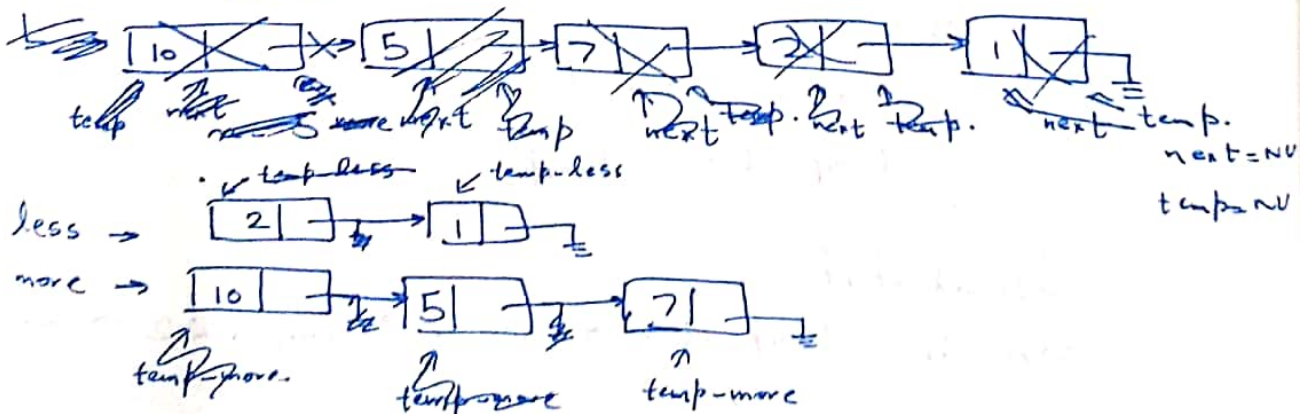 L
10 5 7 2 1
temp next more next temp next temp. next temp. next temp.
next = NU
temp = NU
temp-less temp-less
less → 2 1
more → 10 5 7
temp-more. temp-more temp-more